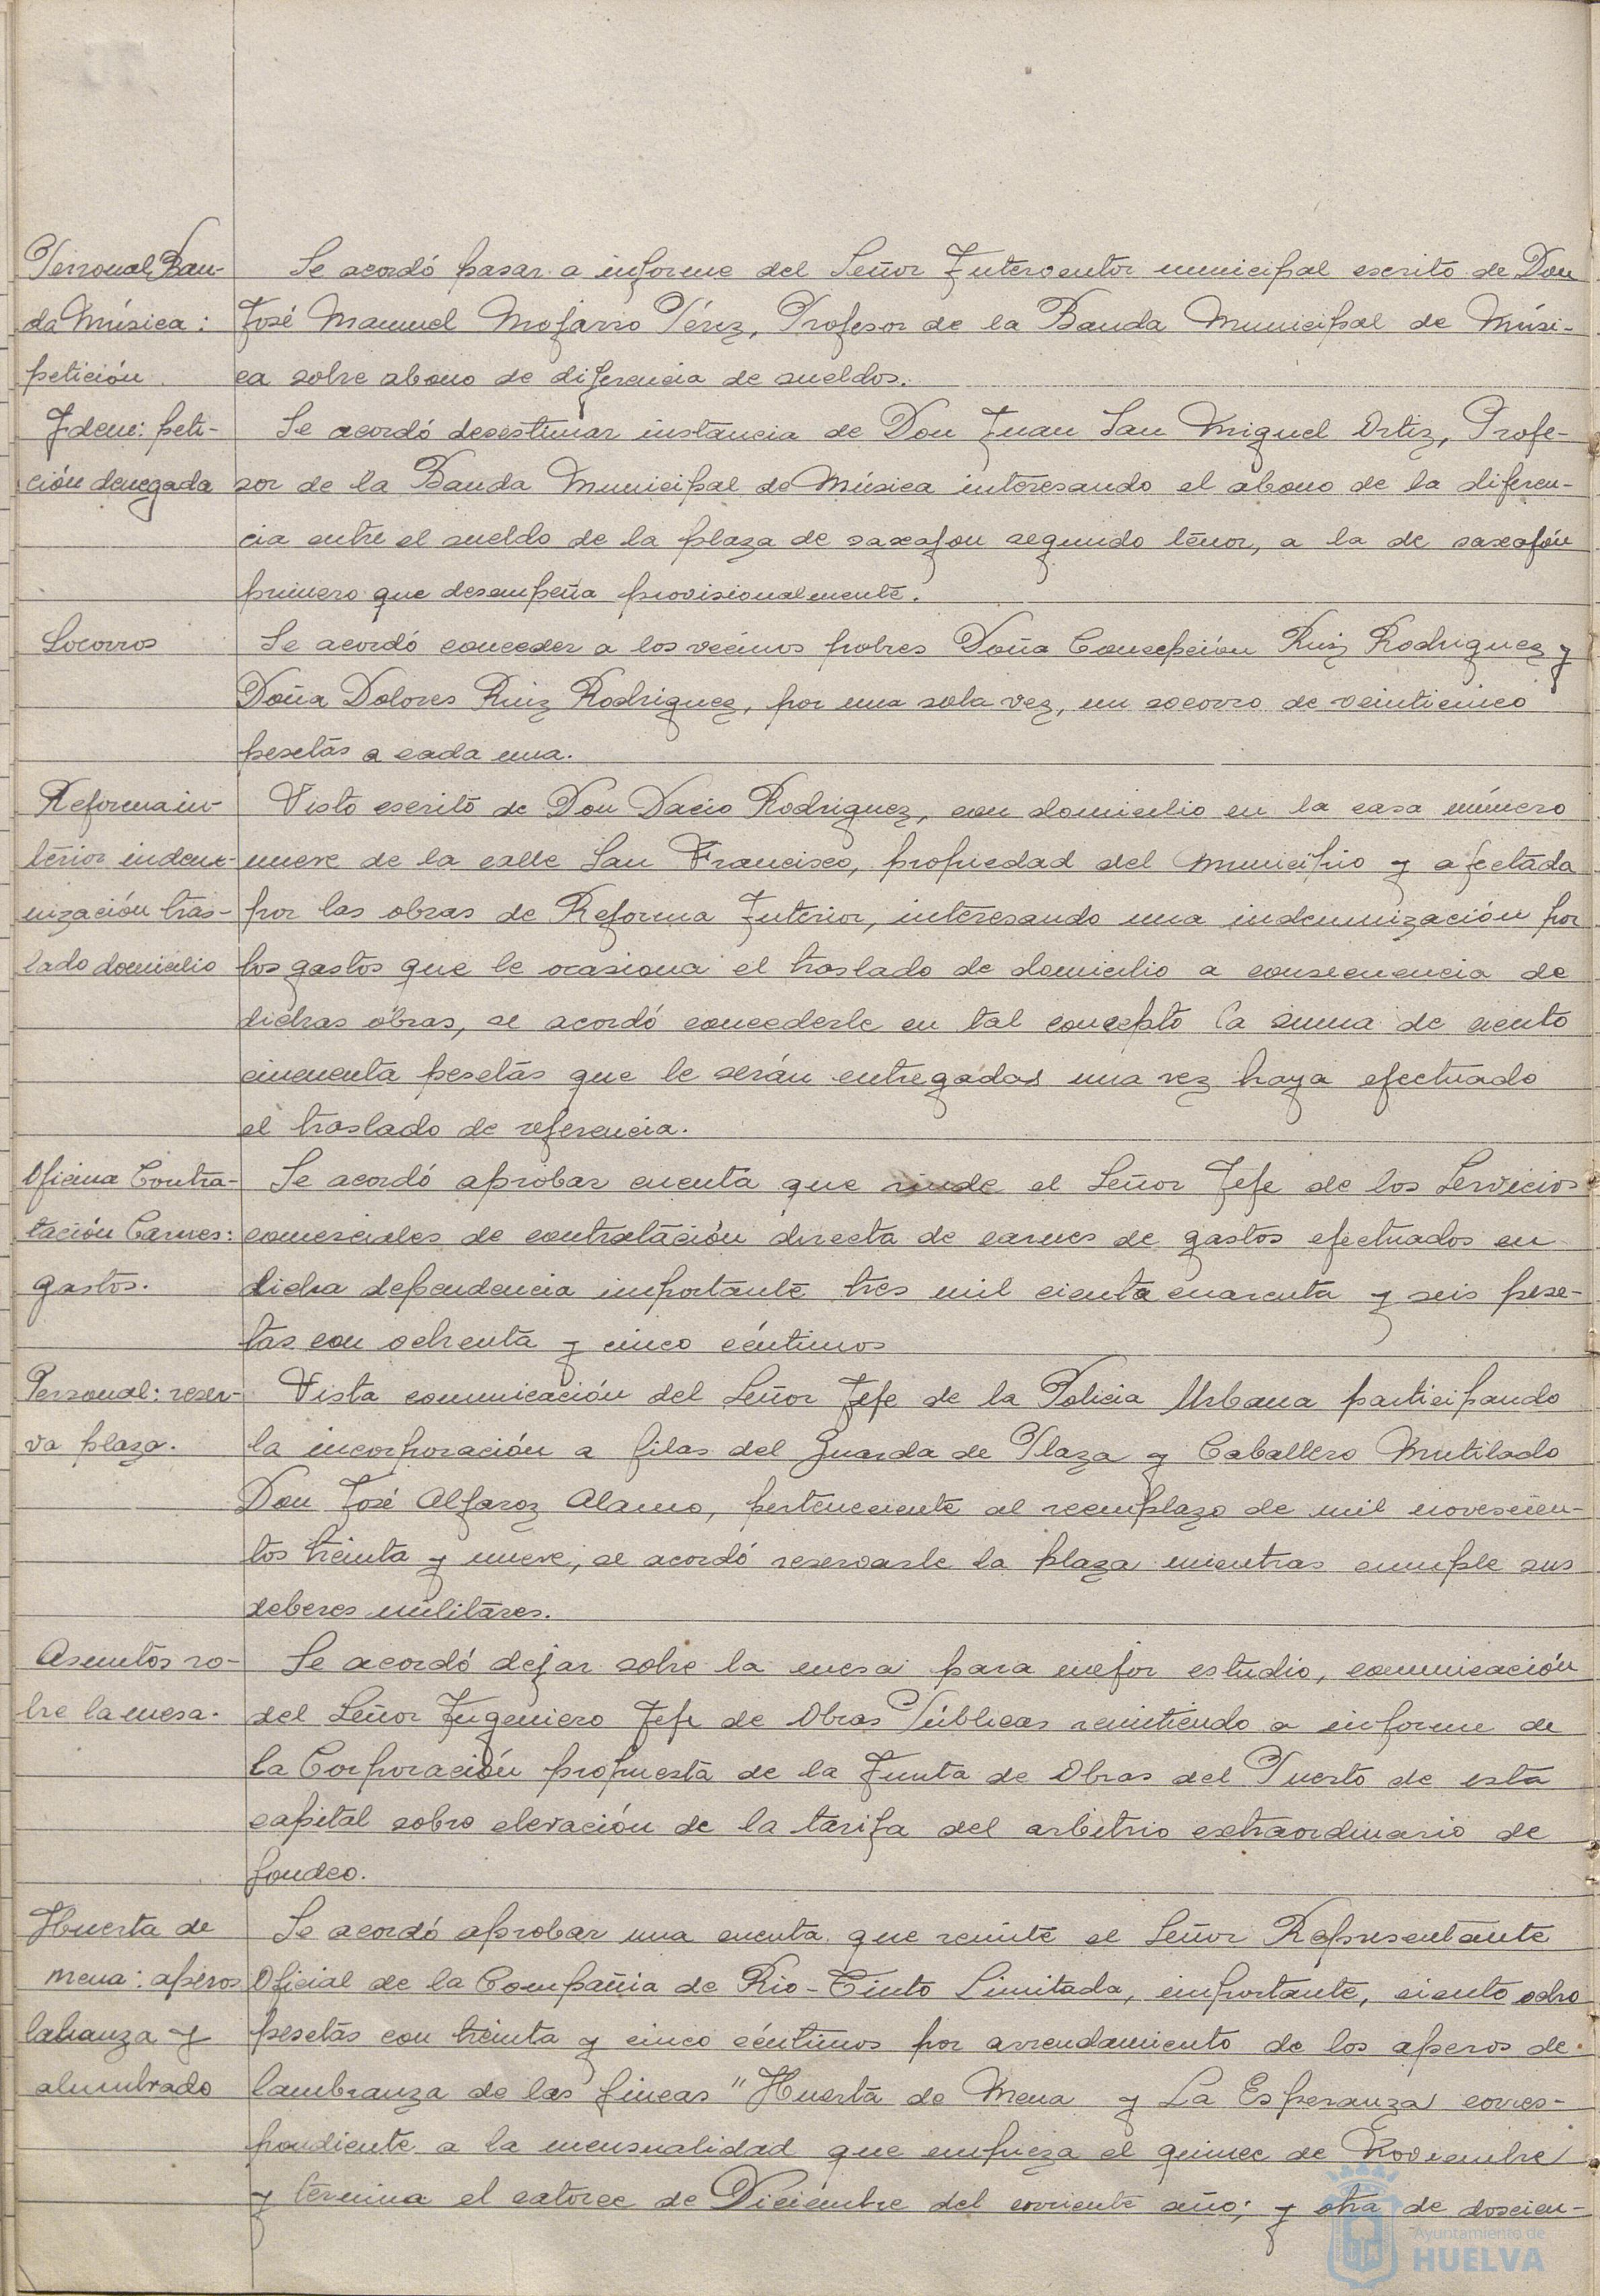 Personal Ban-
da Música:
petición.
Se acordó pasar a informe del Señor Interventor municipal escrito de Don
José Manuel Mojarro Pérez, Profesor de la Banda Municipal de Músi-
ca sobre abono de diferencia de sueldos.
Idem: peti-
ción denegada
Se acordó desestimar instancia de Don Juan San Miguel Ortiz, Profe-
sor de la Banda Municipal de Música interesando el abono de la diferen-
cia entre el sueldo de la plaza de saxafon segundo tenor, a la de saxafón
primero que desempeña provisionalmente.
Socorros
Se acordó conceder a los vecinos pobres Doña Concepción Ruiz Rodriguez y
Doña Dolores Ruiz Rodriguez, por una sola vez, un socorro de veinticinco
pesetas a cada una.
Reforma in-
terior indem-
nización tras-
lado domicilio
Visto escrito de Don Dacio Rodriguez, con domicilio en la casa número
nueve de la calle San Francisco, propiedad del Municipio y afectada
por las obras de Reforma Interior, interesando una indemnización por
los gastos que le ocasiona el traslado de domicilio a consecuencia de
dichas obras, se acordó concederle en tal concepto la suma de ciento
cincuenta pesetas que le serán entregadas una vez haya efectuado
el traslado de referencia.
Oficina Contra-
tación Carnes:
gastos.
Se acordó aprobar cuenta que rinde el Señor Jefe de los Servicios
comerciales de contratación directa de carnes de gastos efectuados en
dicha dependencia importante tres mil ciento cuarenta y seis pese-
tas con ochenta y cinco céntimos
Personal: reser-
va plaza.
Vista comunicación del Señor Jefe de la Policia Urbana participando
la incorporación a filas del Guarda de Plaza y Caballero Mutilado
Don José Alfaroz Alamo, perteneciente al reemplazo de mil novecien-
tos treinta y nueve, se acordó reservarle la plaza mientras cumple sus
deberes militares.
Asuntos so-
bre la mesa.
Se acordó dejar sobre la mesa para mejor estudio, comunicación
del Señor Ingeniero Jefe de Obras Públicas remitiendo a informe de
la Corporación propuesta de la Junta de Obras del Puerto de esta
capital sobre elevación de la tarifa del arbitrio extraordinario de
fondeo.
Huerta de
Mena: aperos
labranza y
alumbrado
Se acordó aprobar una cuenta que remite el Señor Representante
Oficial de la Compañia de Rio-Tinto Limitada, importante, ciento ocho
pesetas con treinta y cinco céntimos por arrendamiento de los aperos de
lambranza de las fincas "Huerta de Mena y La Esperanza corres-
pondiente a la mensualidad que empieza el quince de Noviembre
y termina el catorce de Diciembre del corriente año; y otra de doscien-
Ayuntamiento de
HUELVA